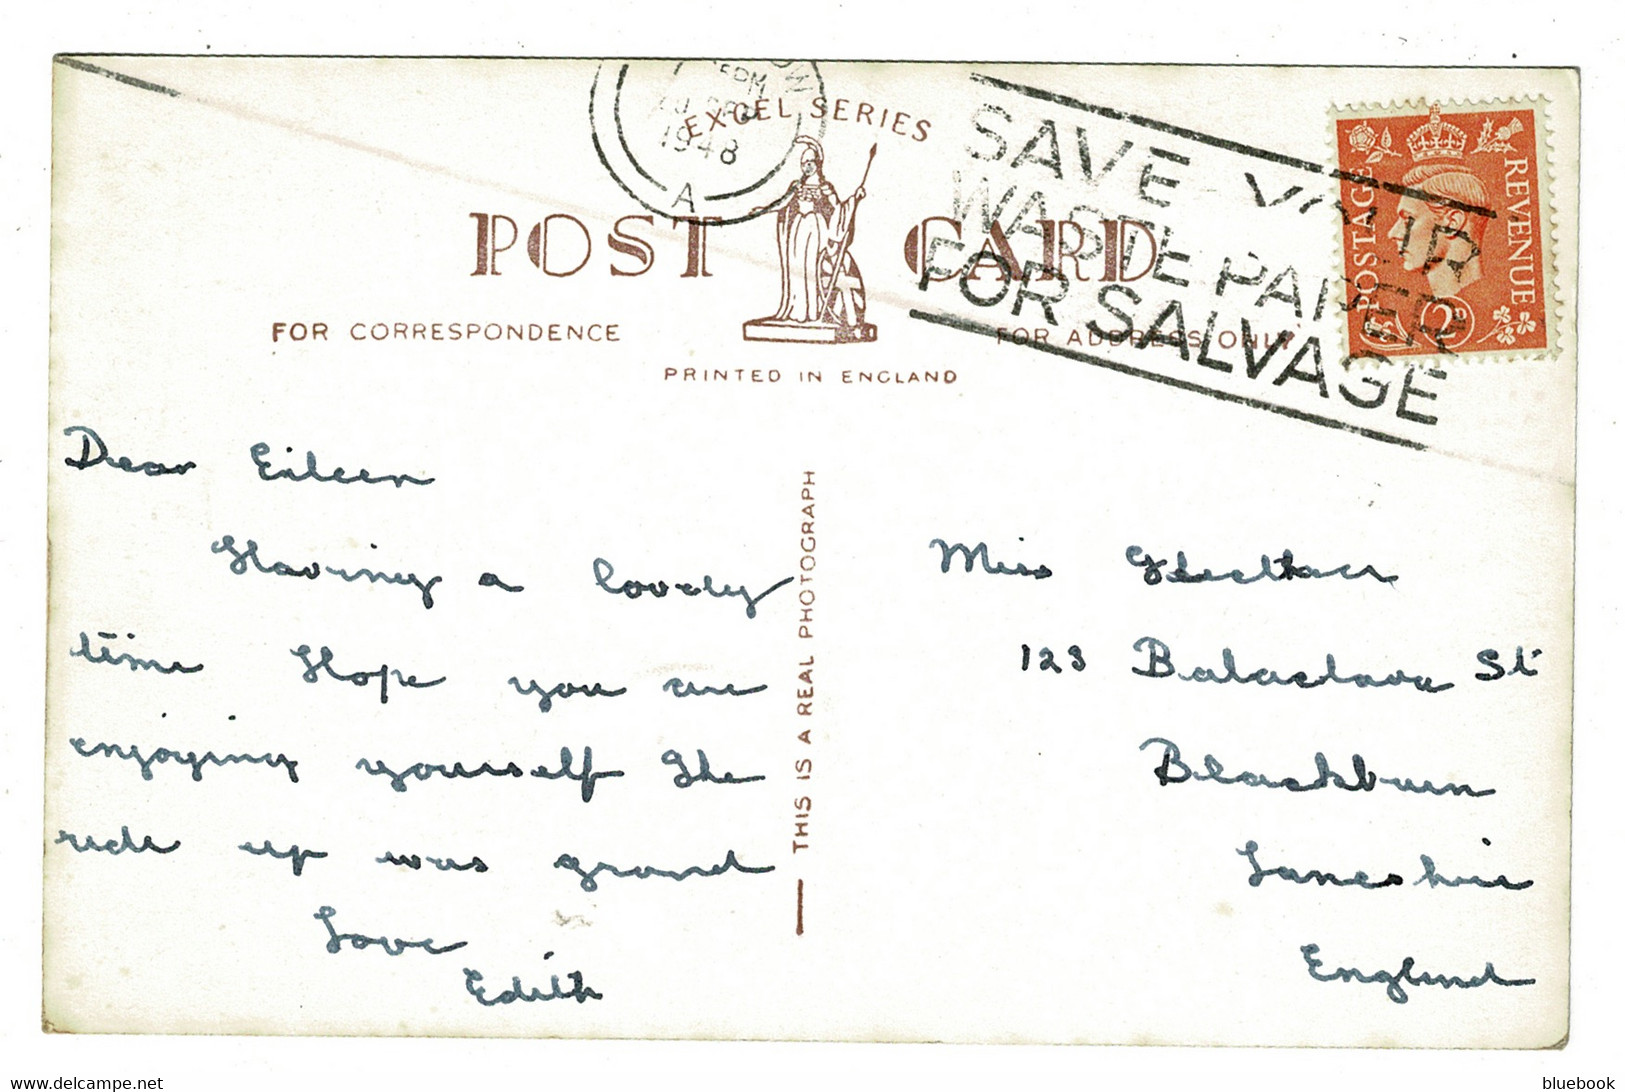 1948
A
EXCEL SERIES
SAVE YOUR
WASTE PAPER
FOR SALVAGE
POSTAGE
REVENUE
2D
POST CARD
FOR CORRESPONDENCE
FOR ADDRESS ONLY
PRINTED IN ENGLAND
Dear Eileen
Having a lovely
time Hope you are
enjoying yourself The
ride up was grand
Love
Edith
THIS IS A REAL PHOTOGRAPH
Miss
123 Balaclava St
Blackburn
Lancshire
England
http://www.delcampe.net
bluebook